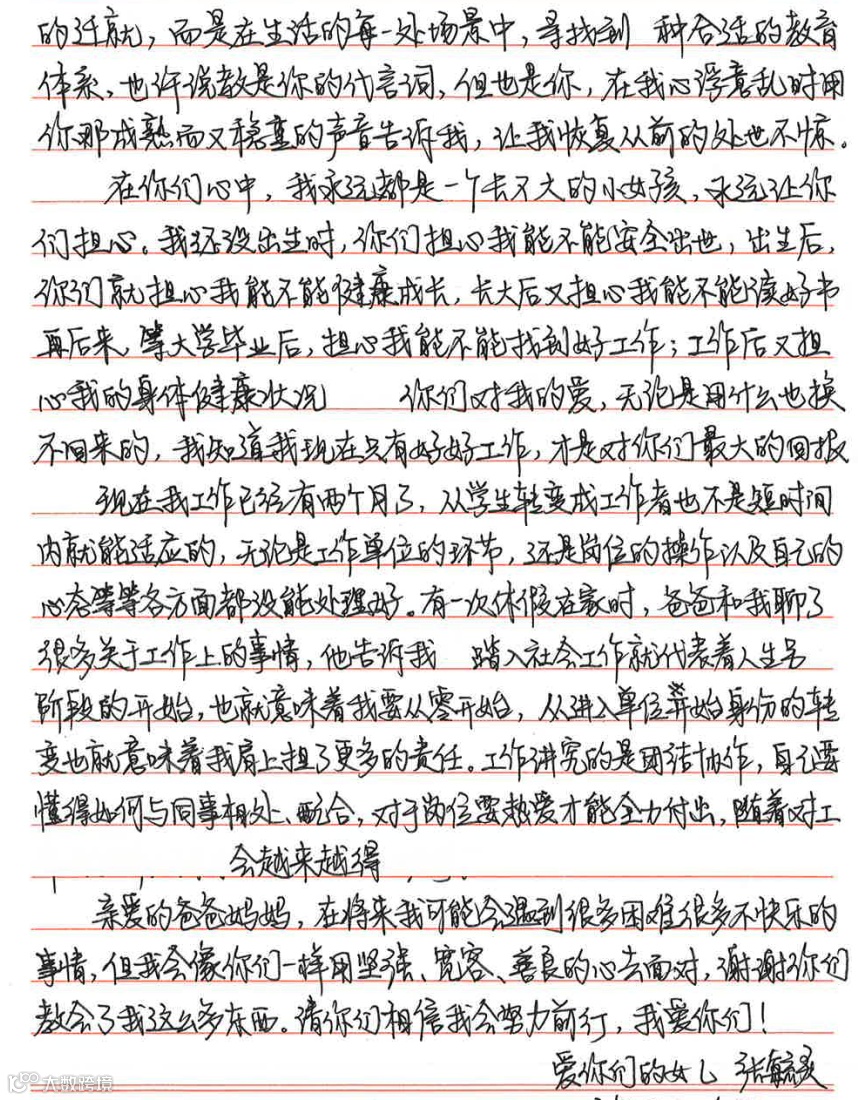 的迁就，而是在生活的每一处场景中，寻找到 种合适的教育
体系，也许说教是你的代言词，但也是你，在我心浮意乱时用
你那成熟而又稳重的声音告诉我，让我恢复从前的处世不惊。
在你们心中，我永远都是一个长不大的小女孩，永远让你
们担心。我还没出生时，你们担心我能不能安全出世，出生后，
你们就担心我能不能健康成长，长大后又担心我能不能读好书
再后来，等大学毕业后，担心我能不能找到好工作；工作后又担
心我的身体健康状况 你们对我的爱，无论是用什么也换
不回来的，我知道我现在只有好好工作，才是对你们最大的回报
现在我工作已经有两个月了，从学生转变成工作者也不是短时间
内就能适应的，无论是工作单位的环节，还是岗位的操作以及自己的
心态等等各方面都没能处理好。有一次休假在家时，爸爸和我聊了
很多关于工作上的事情，他告诉我 踏入社会工作就代表着人生另
阶段的开始，也就意味着我要从零开始，从进入单位开始身份的转
变也就意味着我肩上担了更多的责任。工作讲究的是团结协作，自己要
懂得如何与同事相处、配合，对于岗位要热爱才能全力付出，随着对工
会越来越得
亲爱的爸爸妈妈，在将来我可能会遇到很多困难很多不快乐的
事情，但我会像你们一样用坚强、宽容、善良的心去面对，谢谢你们
教会了我这么多东西。请你们相信我会努力前行，我爱你们！
爱你们的女儿 张毓灵
大数跨境